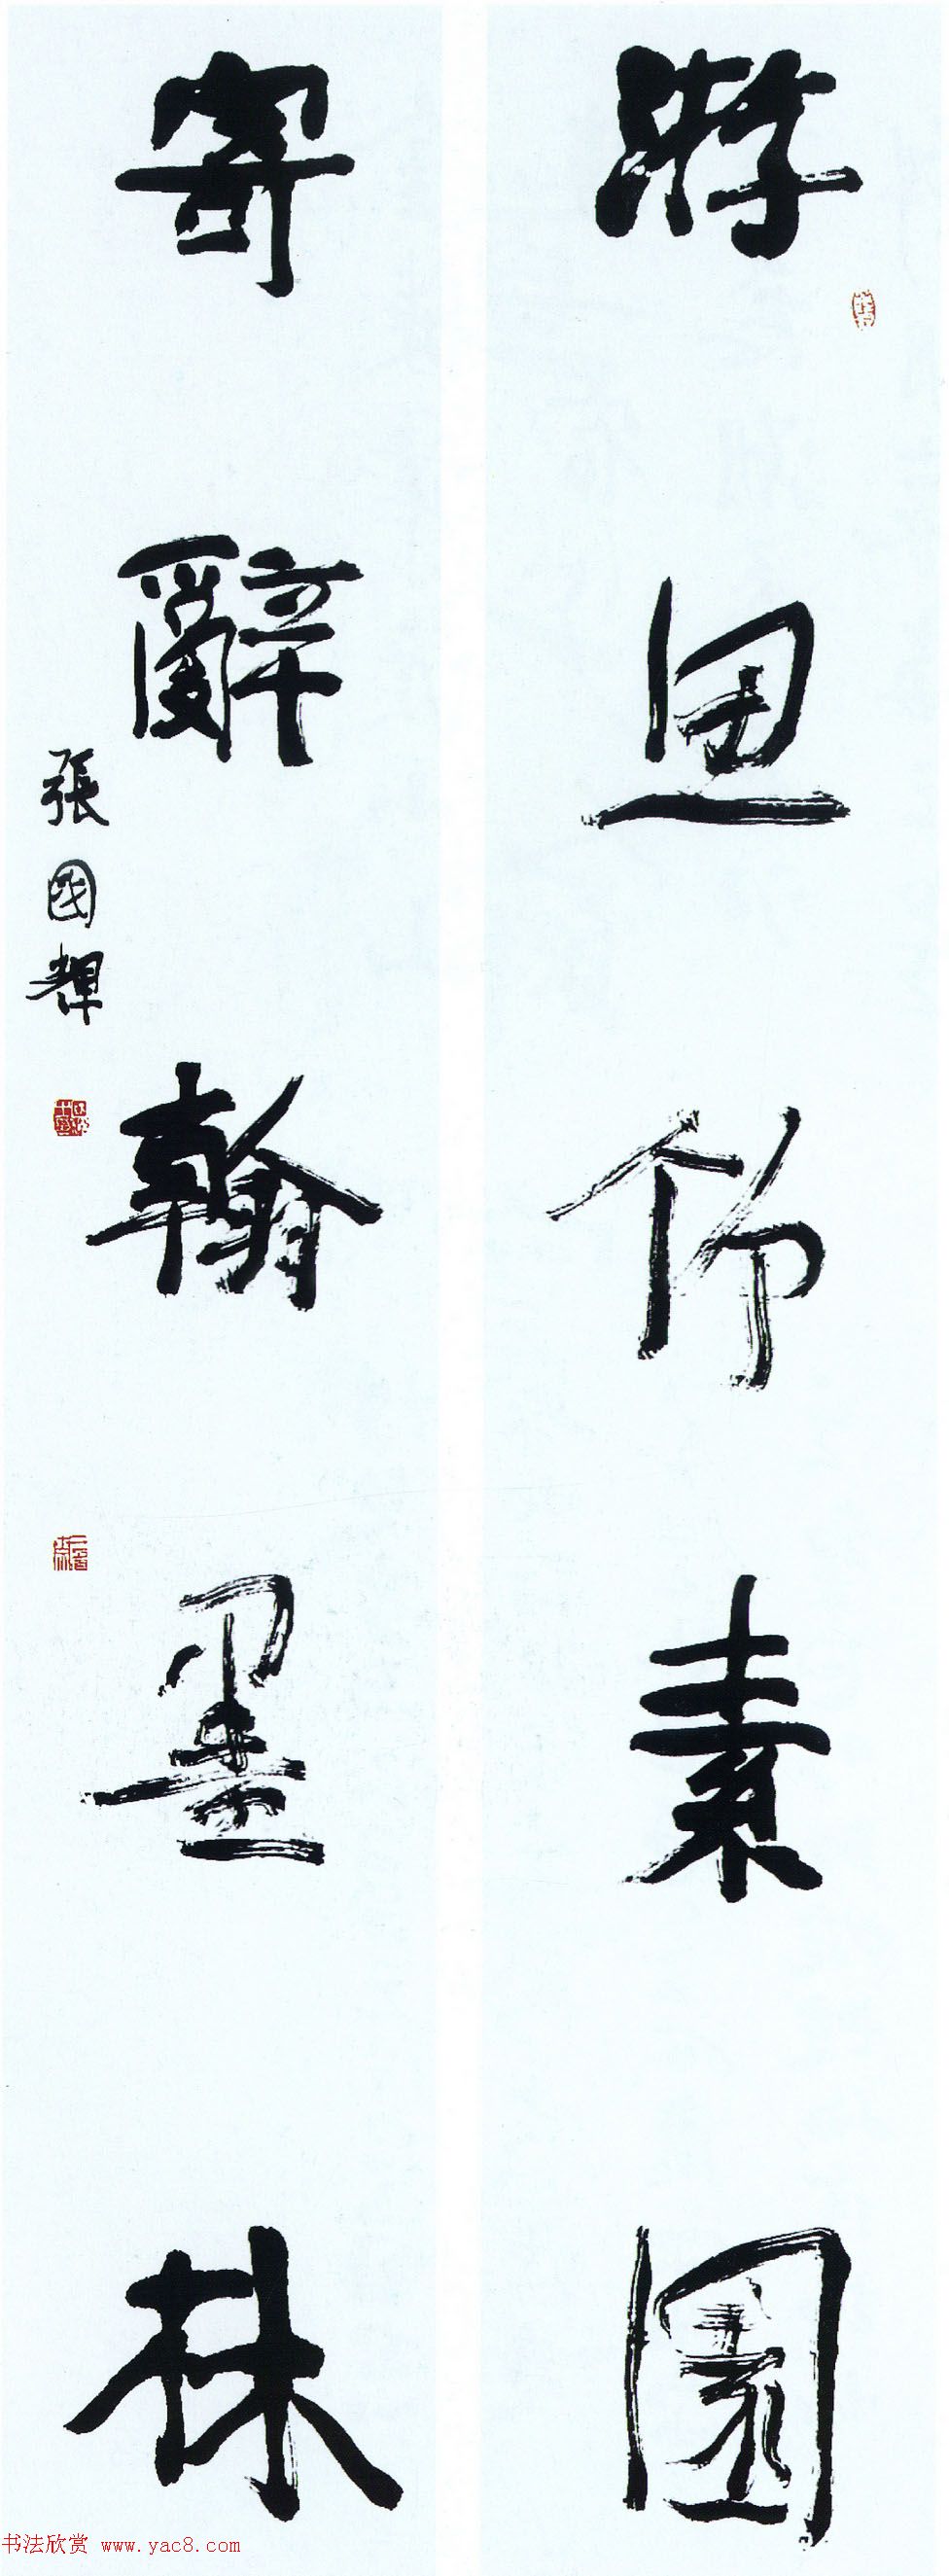 游思竹素園
寄辭翰墨林
張國輝
书法欣赏 www.yac8.com